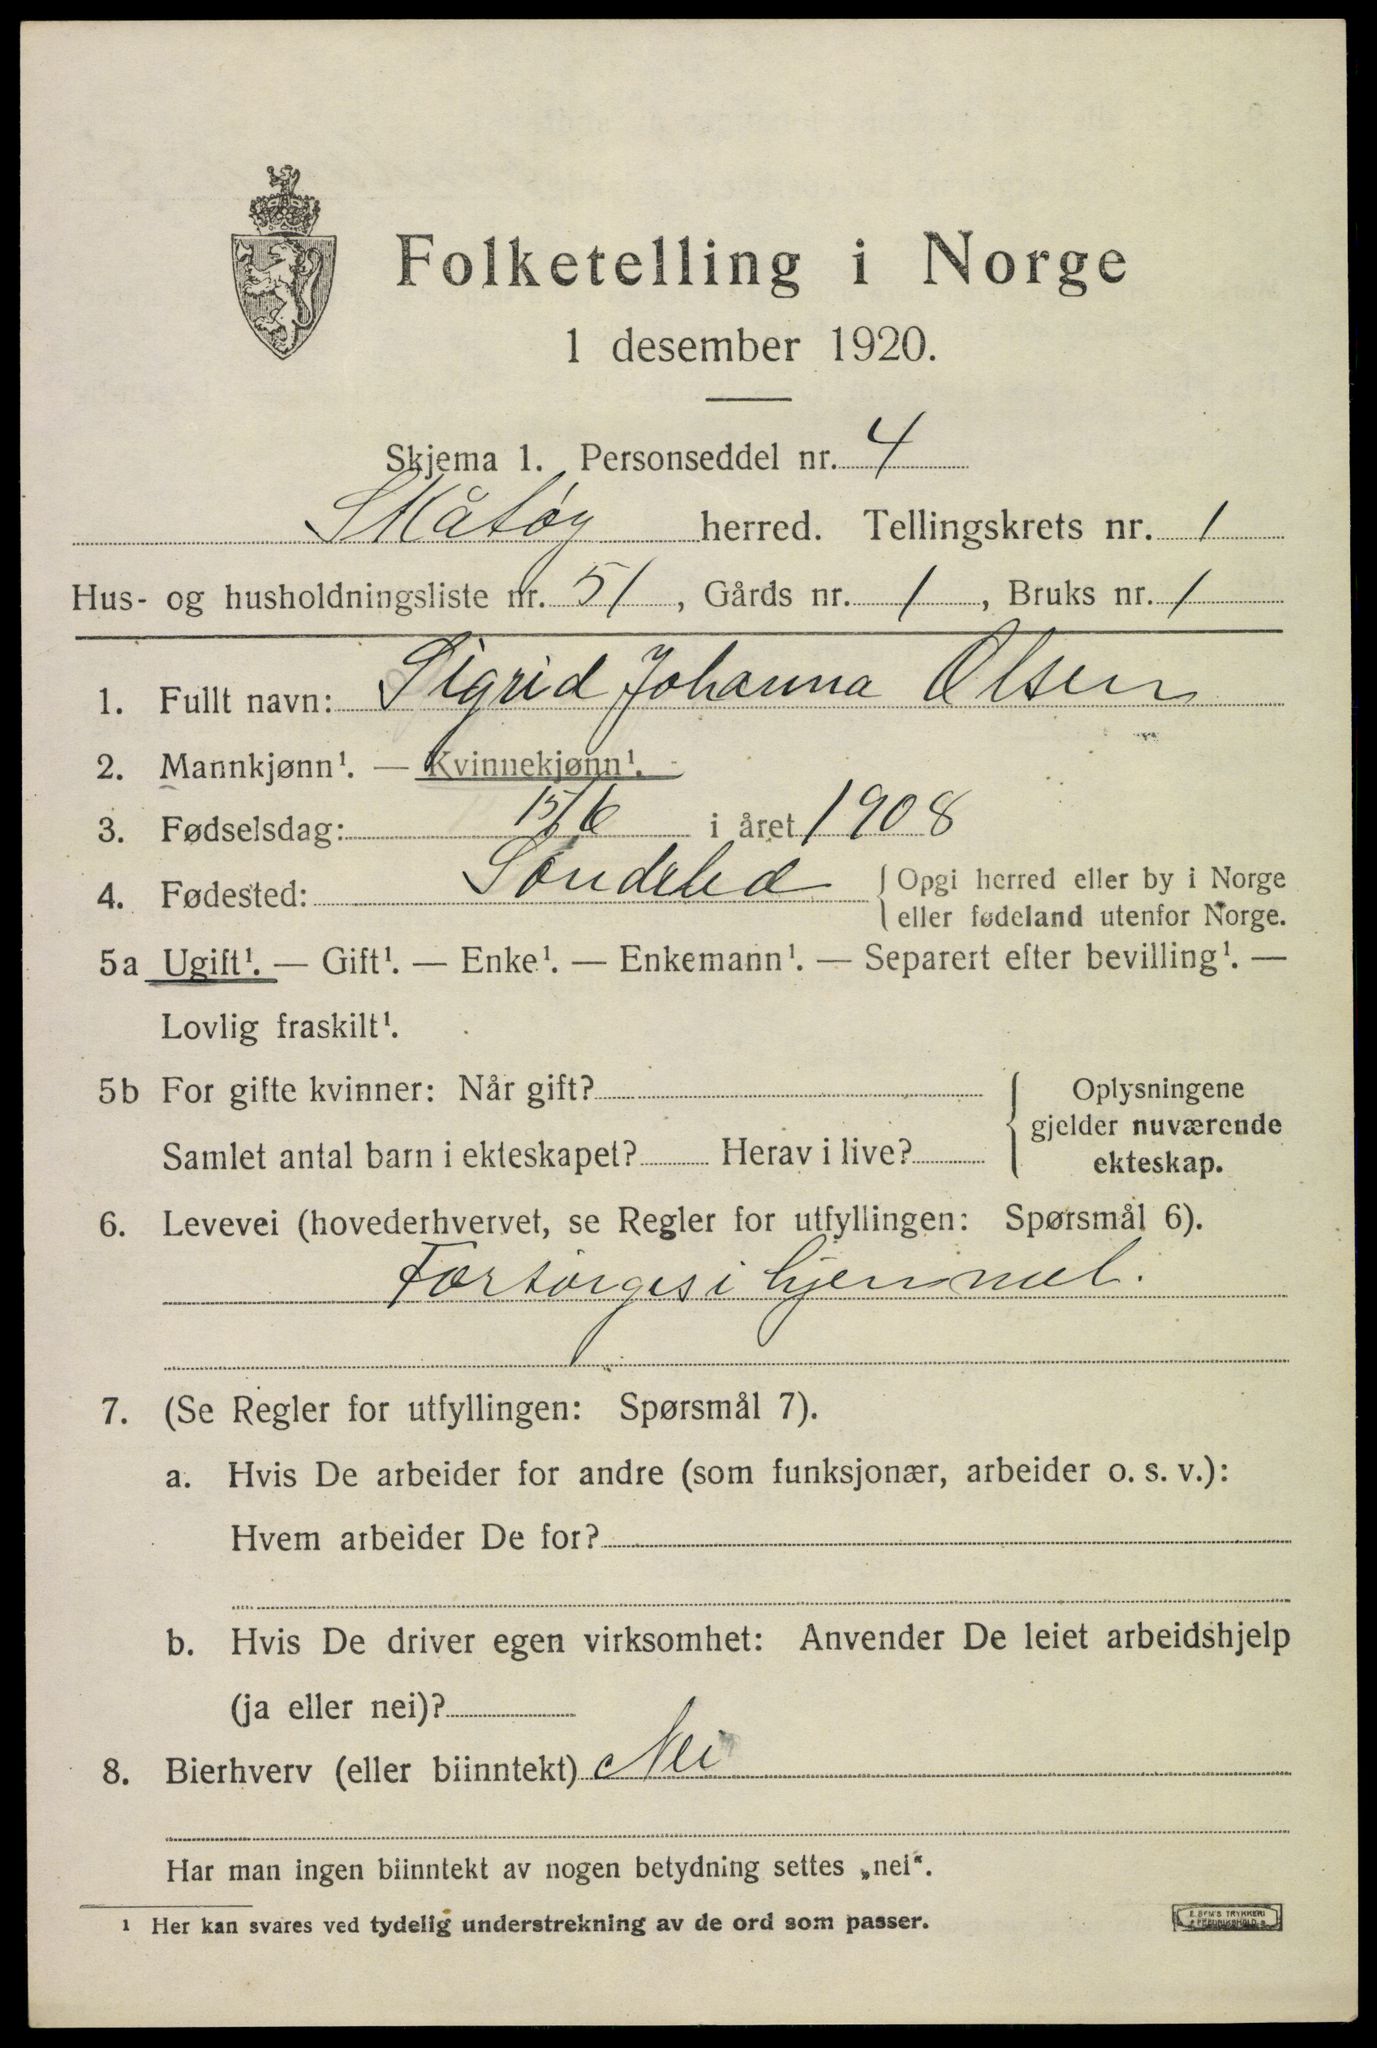 Folketelling i Norge
1 desember 1920.
Skjema 1. Personseddel nr. 4
Skåtøy herred. Tellingskrets nr. 1
Hus- og husholdningsliste nr. 51, Gårds nr. 1, Bruks nr. 1
1. Fullt navn: Sigrid Johanna Olsen
2. Mannkjønn¹. — Kvinnekjønn¹.
3. Fødselsdag: 15/6 i året 1908
4. Fødested: Søndeled { Opgi herred eller by i Norge
eller fødeland utenfor Norge.
5a Ugift¹. — Gift¹. — Enke¹. — Enkemann¹. — Separert efter bevilling¹. —
Lovlig fraskilt¹.
5b For gifte kvinner: Når gift?
Samlet antal barn i ekteskapet? Herav i live?
{ Oplysningene
gjelder nuværende
ekteskap.
6. Levevei (hovederhvervet, se Regler for utfyllingen: Spørsmål 6).
Forsørges i hjemmet.
7. (Se Regler for utfyllingen: Spørsmål 7).
a. Hvis De arbeider for andre (som funksjonær, arbeider o. s. v.):
Hvem arbeider De for?
b. Hvis De driver egen virksomhet: Anvender De leiet arbeidshjelp
(ja eller nei)?
8. Bierhverv (eller biinntekt) Nei
Har man ingen biinntekt av nogen betydning settes „nei“.
¹ Her kan svares ved tydelig understrekning av de ord som passer.
E. SEM'S TRYKKERI
FREDRIKSHALD